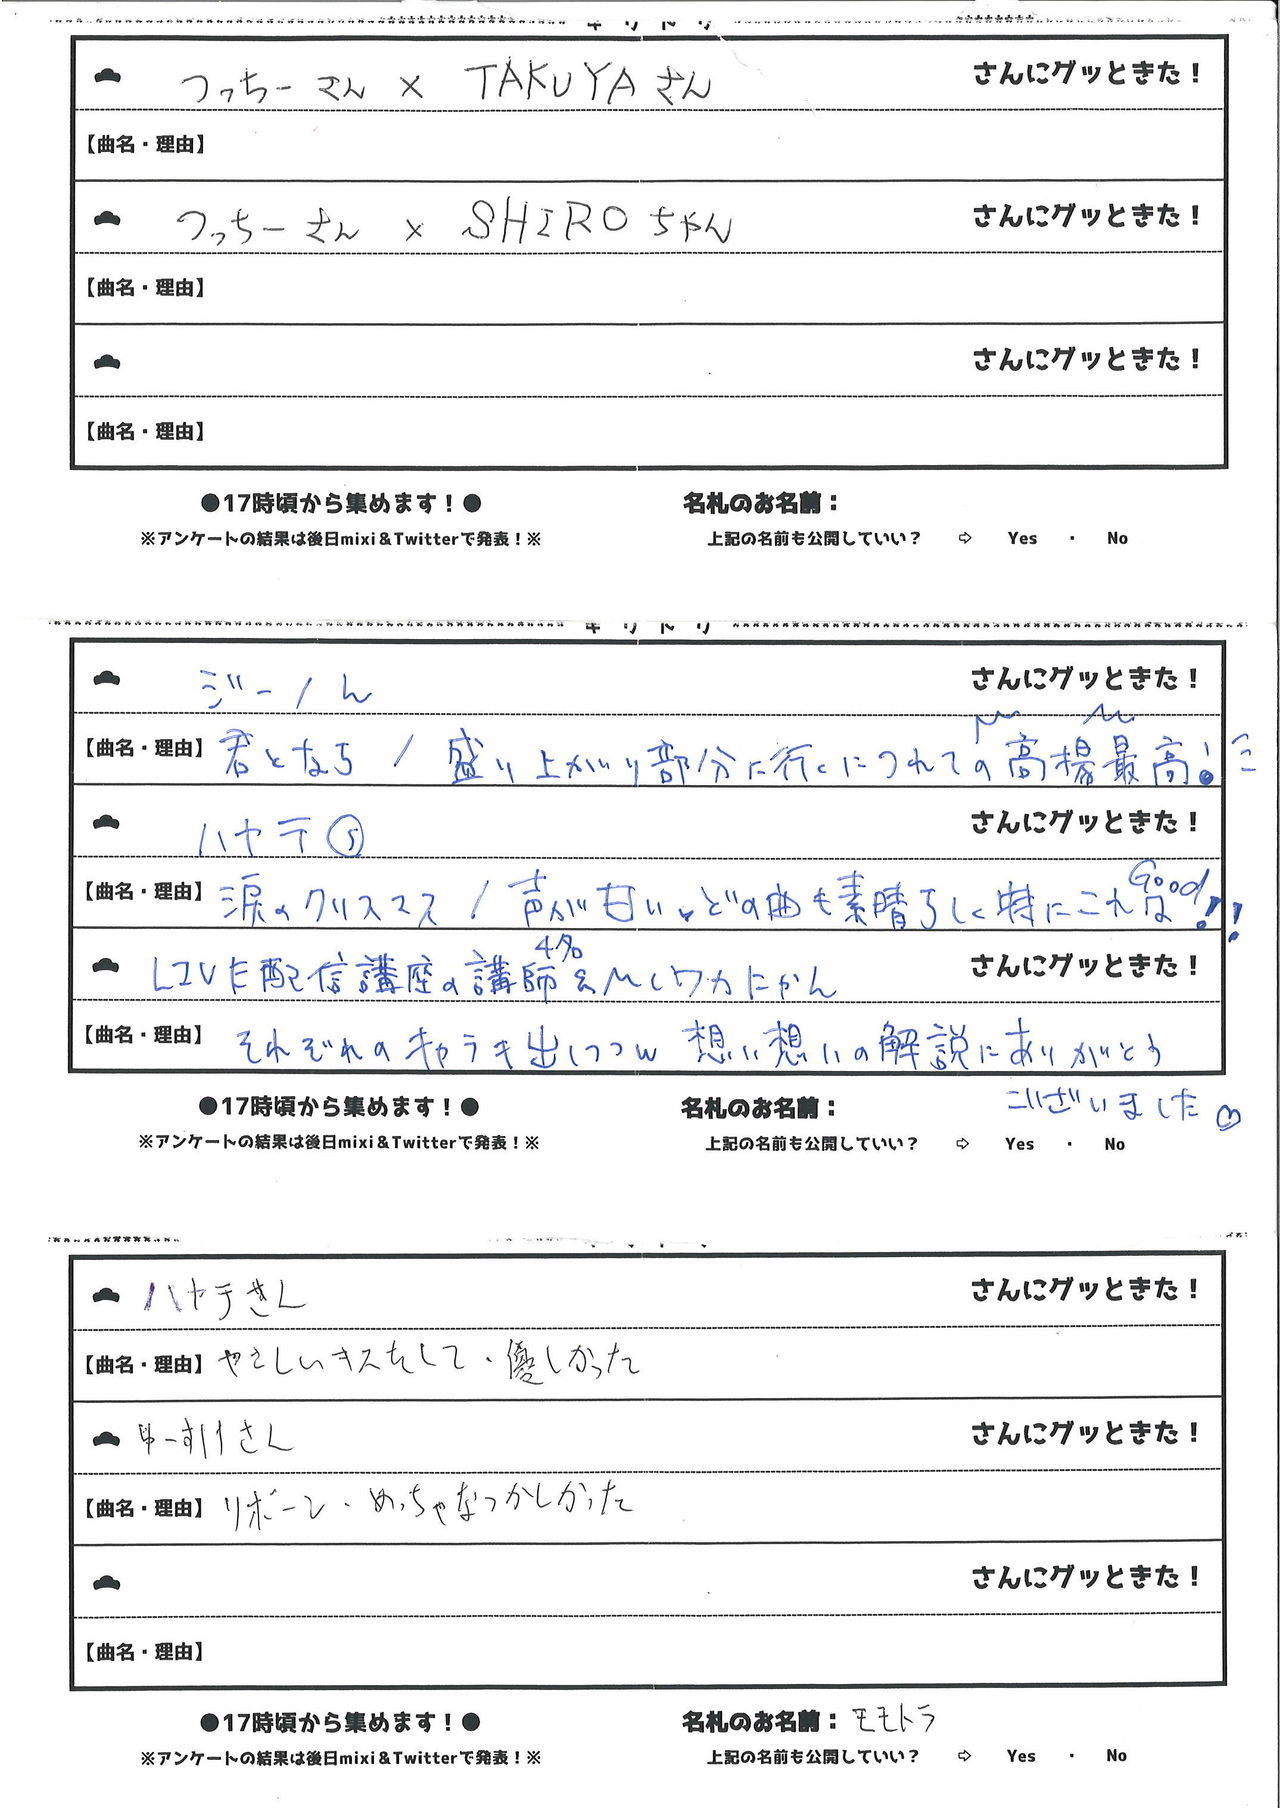 キリトリ
つっちーさん × TAKUYAさん さんにグッときた！
【曲名・理由】
つっちーさん × SHIROちゃん さんにグッときた！
【曲名・理由】
さんにグッときた！
【曲名・理由】
●17時頃から集めます！● 名札のお名前：
※アンケートの結果は後日mixi＆Twitterで発表！※ 上記の名前も公開していい？ ⇨ Yes ・ No
キリトリ
ジーノん さんにグッときた！
【曲名・理由】 君となら / 盛り上がり部分に行くにつれての高揚最高！
ハヤテ⑤ さんにグッときた！
【曲名・理由】 涙のクリスマス / 声が甘い。どの曲も素晴らしく特にこれはGood!!
LIVE配信講座の講師4名 さんにグッときた！
【曲名・理由】 それぞれのキャラを出しつつw 想い想いの解説にありがとう
ございました♡
●17時頃から集めます！● 名札のお名前：
※アンケートの結果は後日mixi＆Twitterで発表！※ 上記の名前も公開していい？ ⇨ Yes ・ No
ハヤテさん さんにグッときた！
【曲名・理由】 やさしいキスをして・優しかった
ゆーすけさん さんにグッときた！
【曲名・理由】 リボーン・めっちゃなつかしかった
さんにグッときた！
【曲名・理由】
●17時頃から集めます！● 名札のお名前：モモトラ
※アンケートの結果は後日mixi＆Twitterで発表！※ 上記の名前も公開していい？ ⇨ Yes ・ No